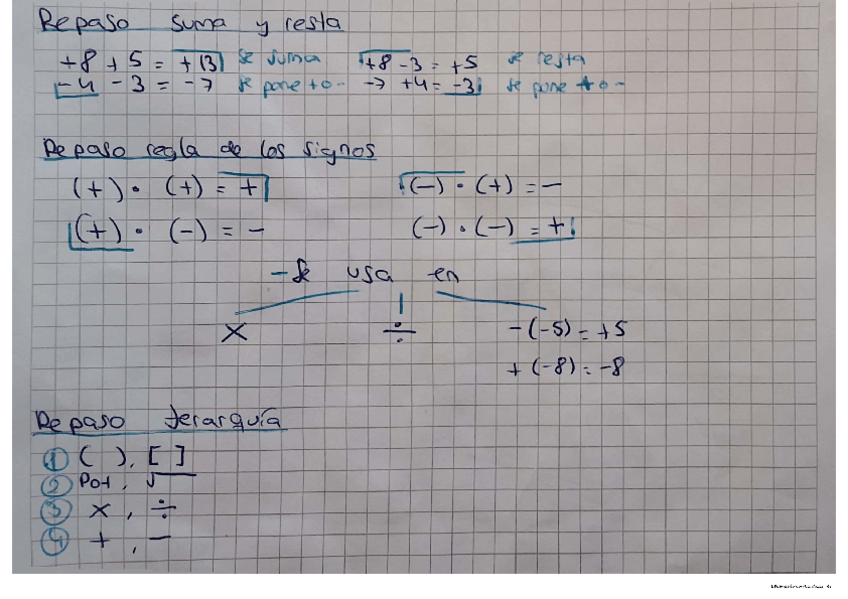 Repaso suma y resta
+8 + 5 = +13 se suma +8 - 3 = +5 se resta
-4 - 3 = -7 se pone + o - -7 +4 = -3 se pone + o -
Repaso regla de los signos
(+) · (+) = + (-) · (+) = -
(+) · (-) = - (-) · (-) = +
- Se usa en
× ÷ - (-5) = +5
+ (-8) = -8
Repaso Jerarquía
① ( ), [ ]
② Pot, √
③ × , ÷
④ + , -